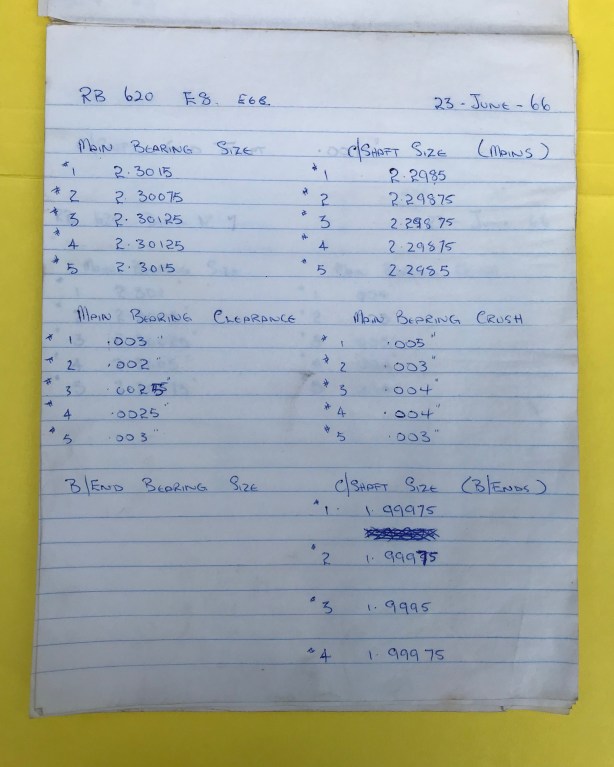 RB 620 E8. E6B. 23-JUNE-66
MAIN BEARING SIZE C/SHAFT SIZE (MAINS)
*1 2.3015 *1 2.2985
*2 2.30075 *2 2.29875
*3 2.30125 *3 2.29875
*4 2.30125 *4 2.29875
*5 2.3015 *5 2.2985
MAIN BEARING CLEARANCE MAIN BEARING CRUSH
*1 .003" *1 .005"
*2 .002" *2 .003"
*3 .0025" *3 .004"
*4 .0025" *4 .004"
*5 .003" *5 .003"
B/END BEARING SIZE C/SHAFT SIZE (B/ENDS)
*1. 1.99975
*2 1.99975
*3 1.9995
*4 1.99975